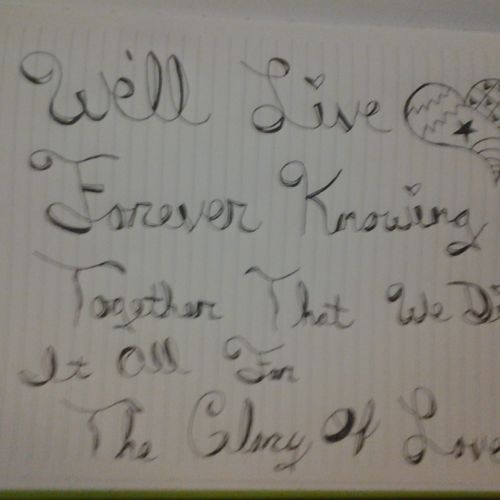 We'll Live
Forever Knowing
Together That We Di
It All For
The Glory Of Love